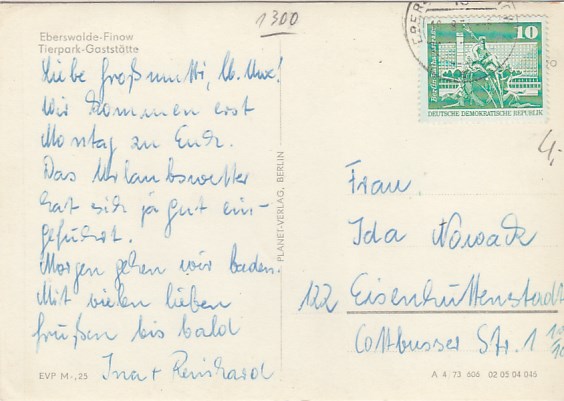 1300
Eberswalde-Finow
Tierpark-Gaststätte
Liebe Großmutti, lb. Uwe!
Wir kommen erst
Montag zu Euch.
Das Urlaubswetter
hat sich ja gut ein-
geführt.
Morgen gehen wir baden.
Mit vielen lieben
Grüßen bis bald
Ina + Reinhard
EVP M -,25
PLANET-VERLAG, BERLIN
10
DEUTSCHE DEMOKRATISCHE REPUBLIK
4,-
Frau
Ida Nowack
122 Eisenhüttenstadt
Cottbusser Str. 1
A 4 73 606 02 05 04 046